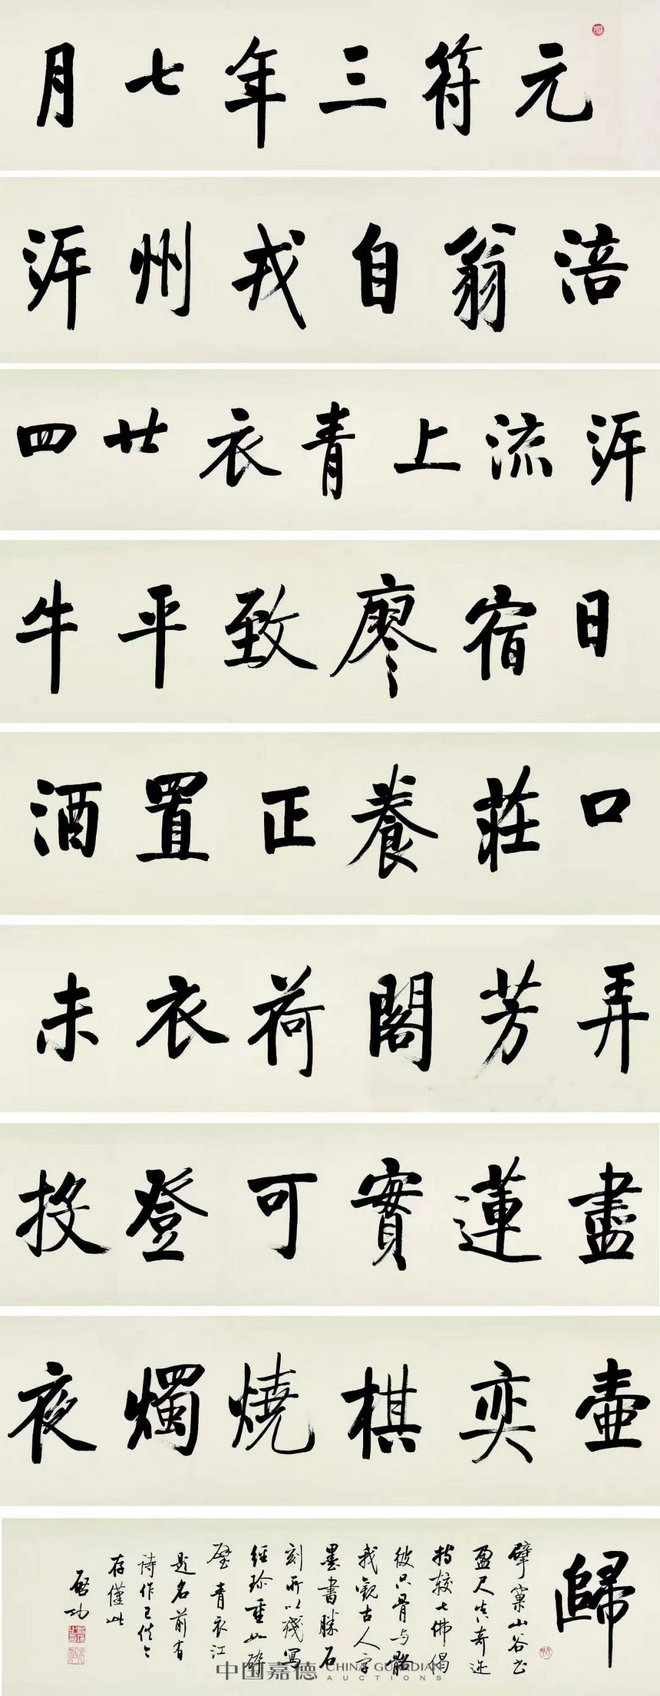 元符三年七月
涪翁自戎州泝
泝流上青衣廿四
日宿廖致平牛
口莊養正置酒
弄芳閣荷衣未
盡蓮實可登投
壺奕棋燒燭夜
歸
擘窠山谷书
盈尺真奇迹
持較七佛偈
彼只骨与骼
我觀古人字
墨書勝石
刻所以殘寫
經珍重如
璧青衣江
題名前有
诗作已佚
存僅此
启功
中国嘉德 CHINA GUARDIAN
AUCTIONS